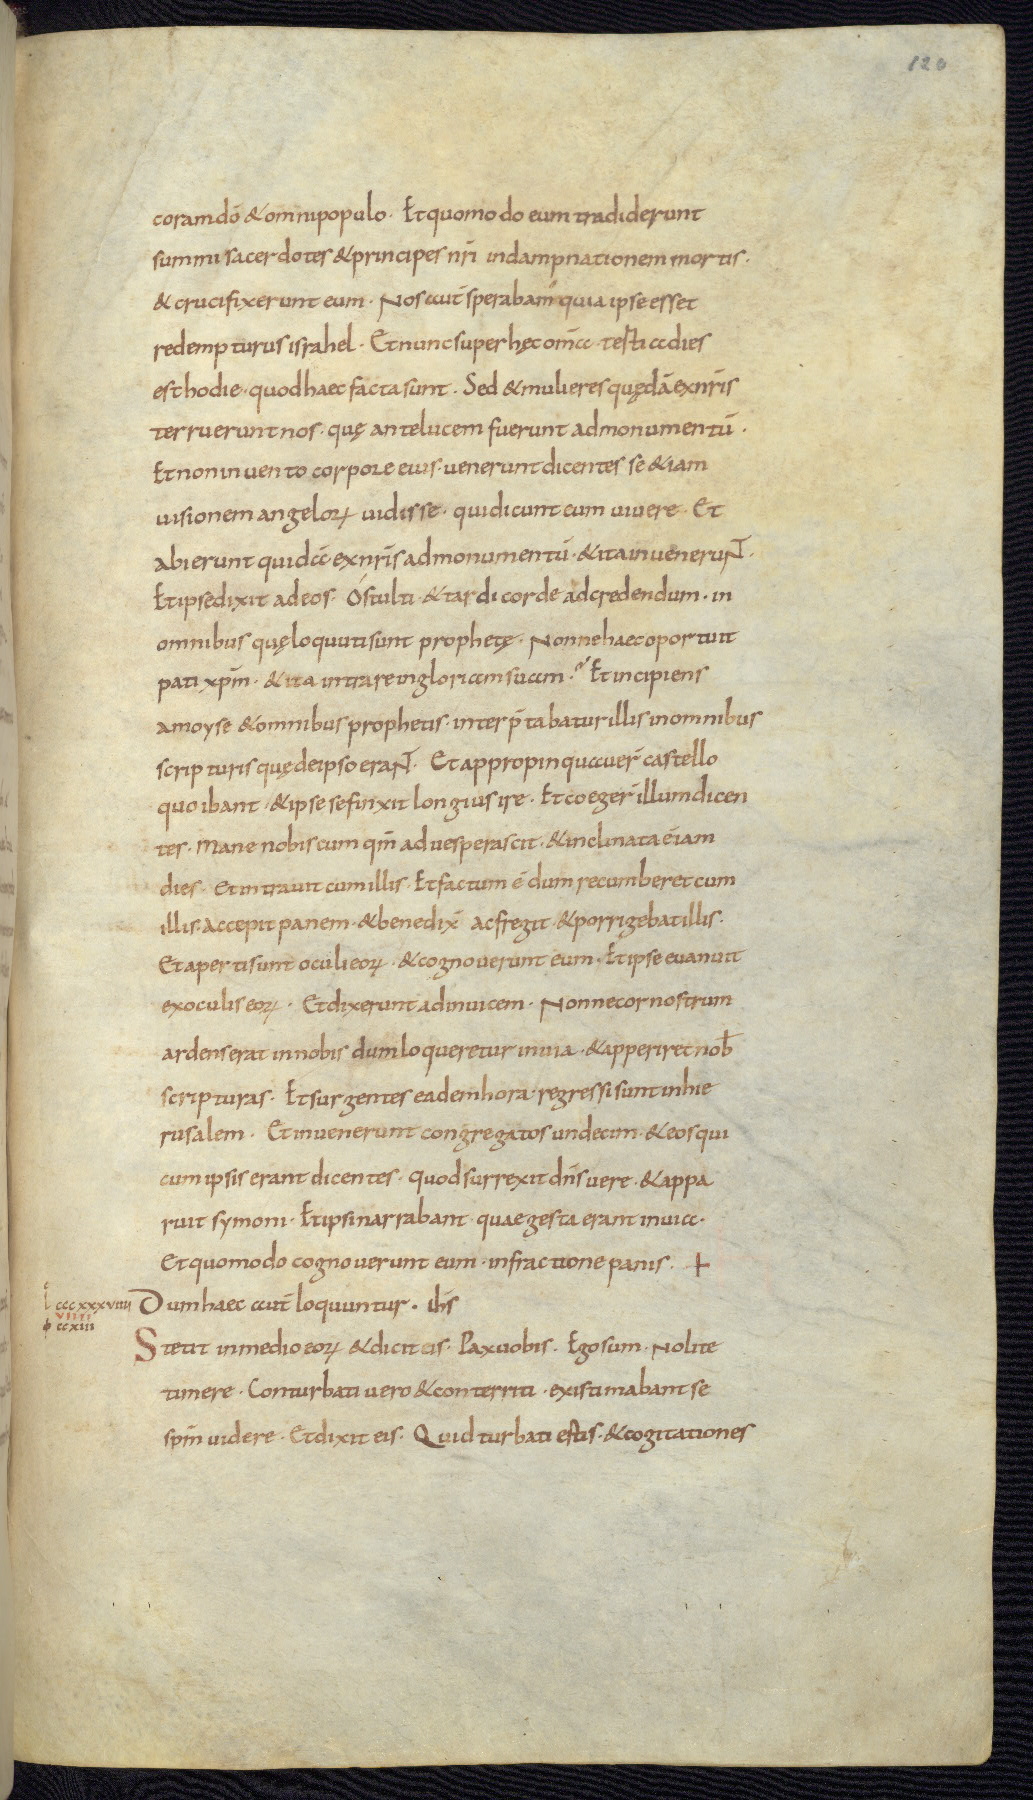 120
coram dō & omni populo · Et quomodo eum tradiderunt
summi sacerdotes & principes nr̄i in dampnationem mortis ·
& crucifixerunt eum · Nos aut̄ sperabam' quia ipse esset
redempturus israhel · Et nunc super hęc om̄a · tertia dies
est hodie · quod haec facta sunt · Sed & mulieres quędā ex nr̄is
terruerunt nos · quę ante lucem fuerunt ad monumentū ·
Et non invento corpore eius · venerunt dicentes se &iam
visionem angeloꝝ vidisse · qui dicunt eum vivere · Et
abierunt quidā ex nr̄is ad monumentū · & ita invenerun̄t ·
Et ipse dixit ad eos · Ó stulti · & tardi corde ad credendum · in
omnibus quę loquuti sunt prophetę · Nonne haec oportuit
pati xp̄m · & ita intrare in gloriam suam · Et incipiens
a moyse & omnibus prophetis · interp̄tabatur illis in omnibus
scripturis quę de ipso erant · Et appropinquauer̄ castello
quo ibant · & ipse se finxit longius ire · Et coeger̄ illum dicen
tes · Mane nobiscum qm̄ advesperascit · & inclinata ē iam
dies · Et intravit cum illis · Et factum ē dum recumberet cum
illis · Accepit panem · & benedix̄ ac fregit · & porrigebat illis ·
Et aperti sunt oculi eoꝝ · & cognoverunt eum · Et ipse evanuit
ex oculis eoꝝ · Et dixerunt ad invicem · Nonne cor nostrum
ardens erat in nobis dum loqueretur in via · & apperiret nob̄
scripturas · Et surgentes eadem hora · regressi sunt in hie
rusalem · Et invenerunt congregatos undecim · & eos qui
cum ipsis erant dicentes · quod surrexit dn̄s vere · & appa
ruit symoni · Et ipsi narrabant · quae gesta erant in via ·
Et quomodo cognoverunt eum · in fractione panis · +
l cccxxxviiii Dum haec aut̄ loquuntur · ih̄s
viiii
ccxiii
Stetit in medio eoꝝ & dicit eis · Pax vobis · Ego sum · Nolite
timere · Conturbati vero & conterriti · existimabant se
sp̄m videre · Et dixit eis · Quid turbati estis · & cogitationes